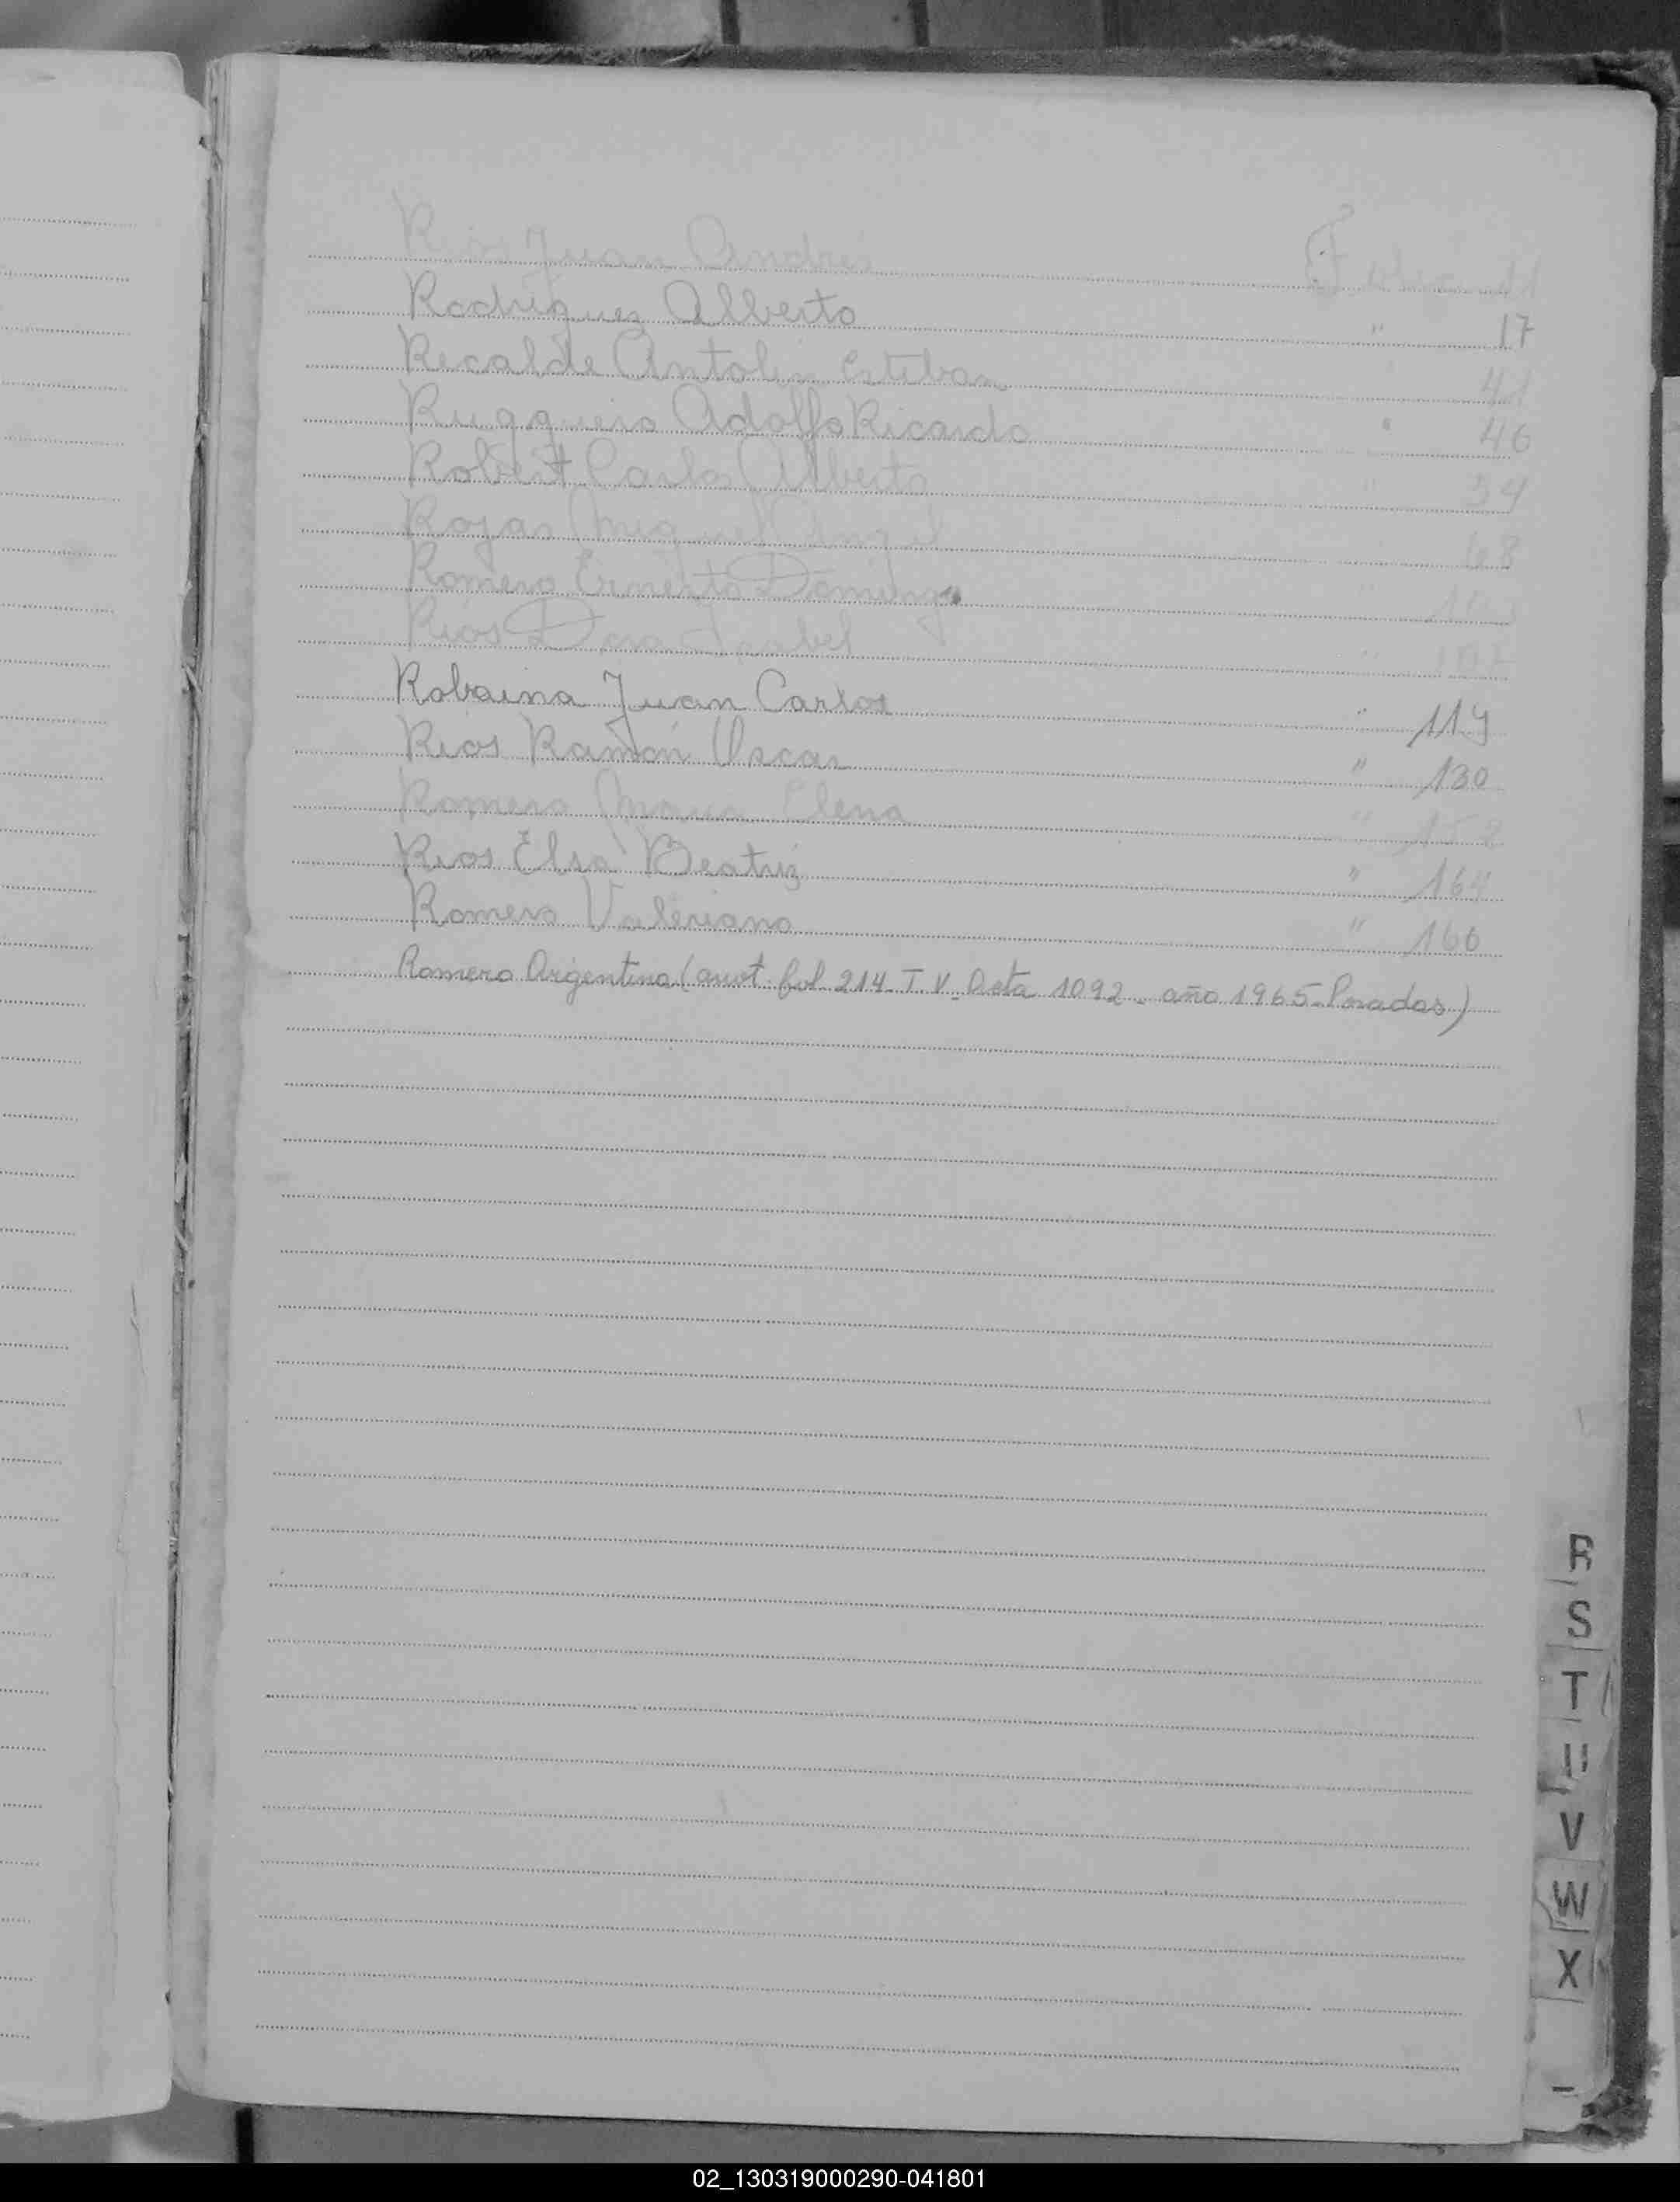 Rios Juan Andrés Folio 11
Rodriguez Alberto " 17
Recalde Antolin Esteban 41
Rugguero Adolfo Ricardo " 46
Robert Carlos Alberto "
Rojas Miguel Angel 68
Romero Ernesto Domingo
Rios Dora Isabel " 107
Robaina Juan Carlos " 119
Rios Ramón Oscar " 130
Romero Maria Elena " 158
Rios Elsa Beatriz " 164
Romero Valeriano " 166
Romero Argentina (anot. fol 214. T. V. Acta 1092 - año 1965 - Posadas)
R
S
T
U
V
W
X
02_130319000290-041801